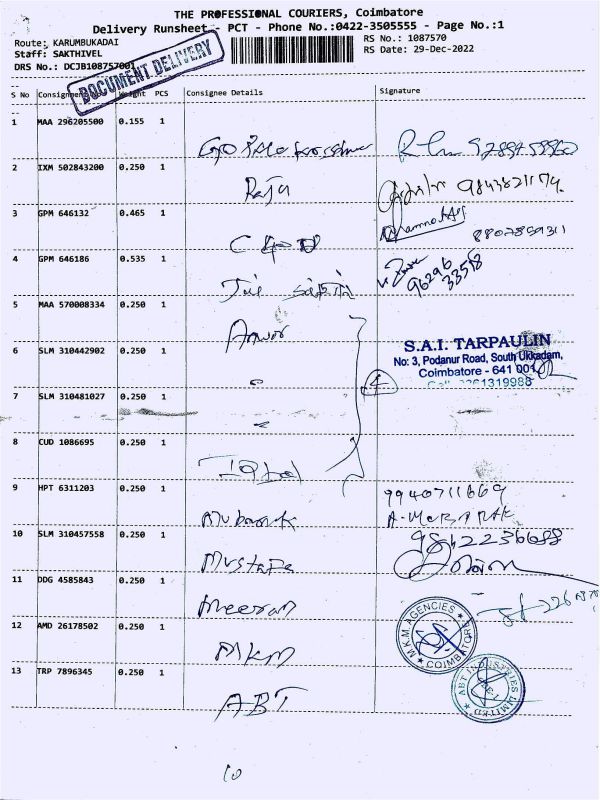 THE PROFESSIONAL COURIERS, Coimbatore
Delivery Runsheet - PCT - Phone No.:0422-3505555 - Page No.:1
Route: KARUMBUKADAI
RS No.: 1087570
Staff: SAKTHIVEL
RS Date: 29-Dec-2022
DRS No.: DCJB108757001
DOCUMENT DELIVERY
S No Consignment No Weight PCS Consignee Details Signature
1 MAA 296205500 0.155 1
2 IXM 502843200 0.250 1 Raja 9843821174.
3 GPM 646132 0.465 1 8807859311
4 GPM 646186 0.535 1 96296
33518
5 MAA 570008334 0.250 1 Anwar
6 SLM 310442902 0.250 1 4
S.A.I. TARPAULIN
No: 3, Podanur Road, South Ukkadam,
Coimbatore - 641 001
7 SLM 310481027 0.250 1
8 CUD 1086695 0.250 1 Iqbal
9 HPT 6311203 0.250 1 Mubarak 9940711669
A-MUBARAK
10 SLM 310457558 0.250 1 Mustafa
11 DDG 4585843 0.250 1 Meeran
12 AMD 26178502 0.250 1 MKM
M.K.M. AGENCIES
COIMBATORE
13 TRP 7896345 0.250 1 ABT
ABT INDUSTRIES LIMITED
10